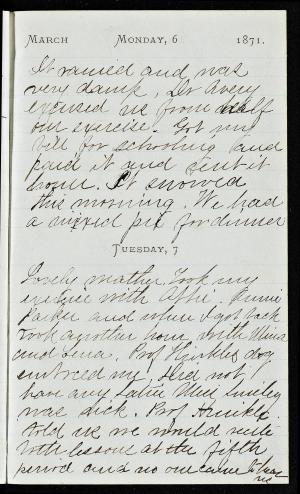 MARCH MONDAY, 6 1871.
It rained and was
very damp. Dr Avery
excused us from half
our exercise. Got my
bill for schooling and
paid it and sent it
home. It snowed
this morning. We had
a mixed pie for dinner
TUESDAY, 7
Lovely weather. Took my
exercise with Affie. Annie
Parker and when I got back
took another hour with Mina
and Lena. Prof Hinkles dog
embraced me, did not
have any Latin Miss Smiley
was sick. Prof Hinkle
told us we would recite
both lessons at the fifth
period and no one came to hear
us